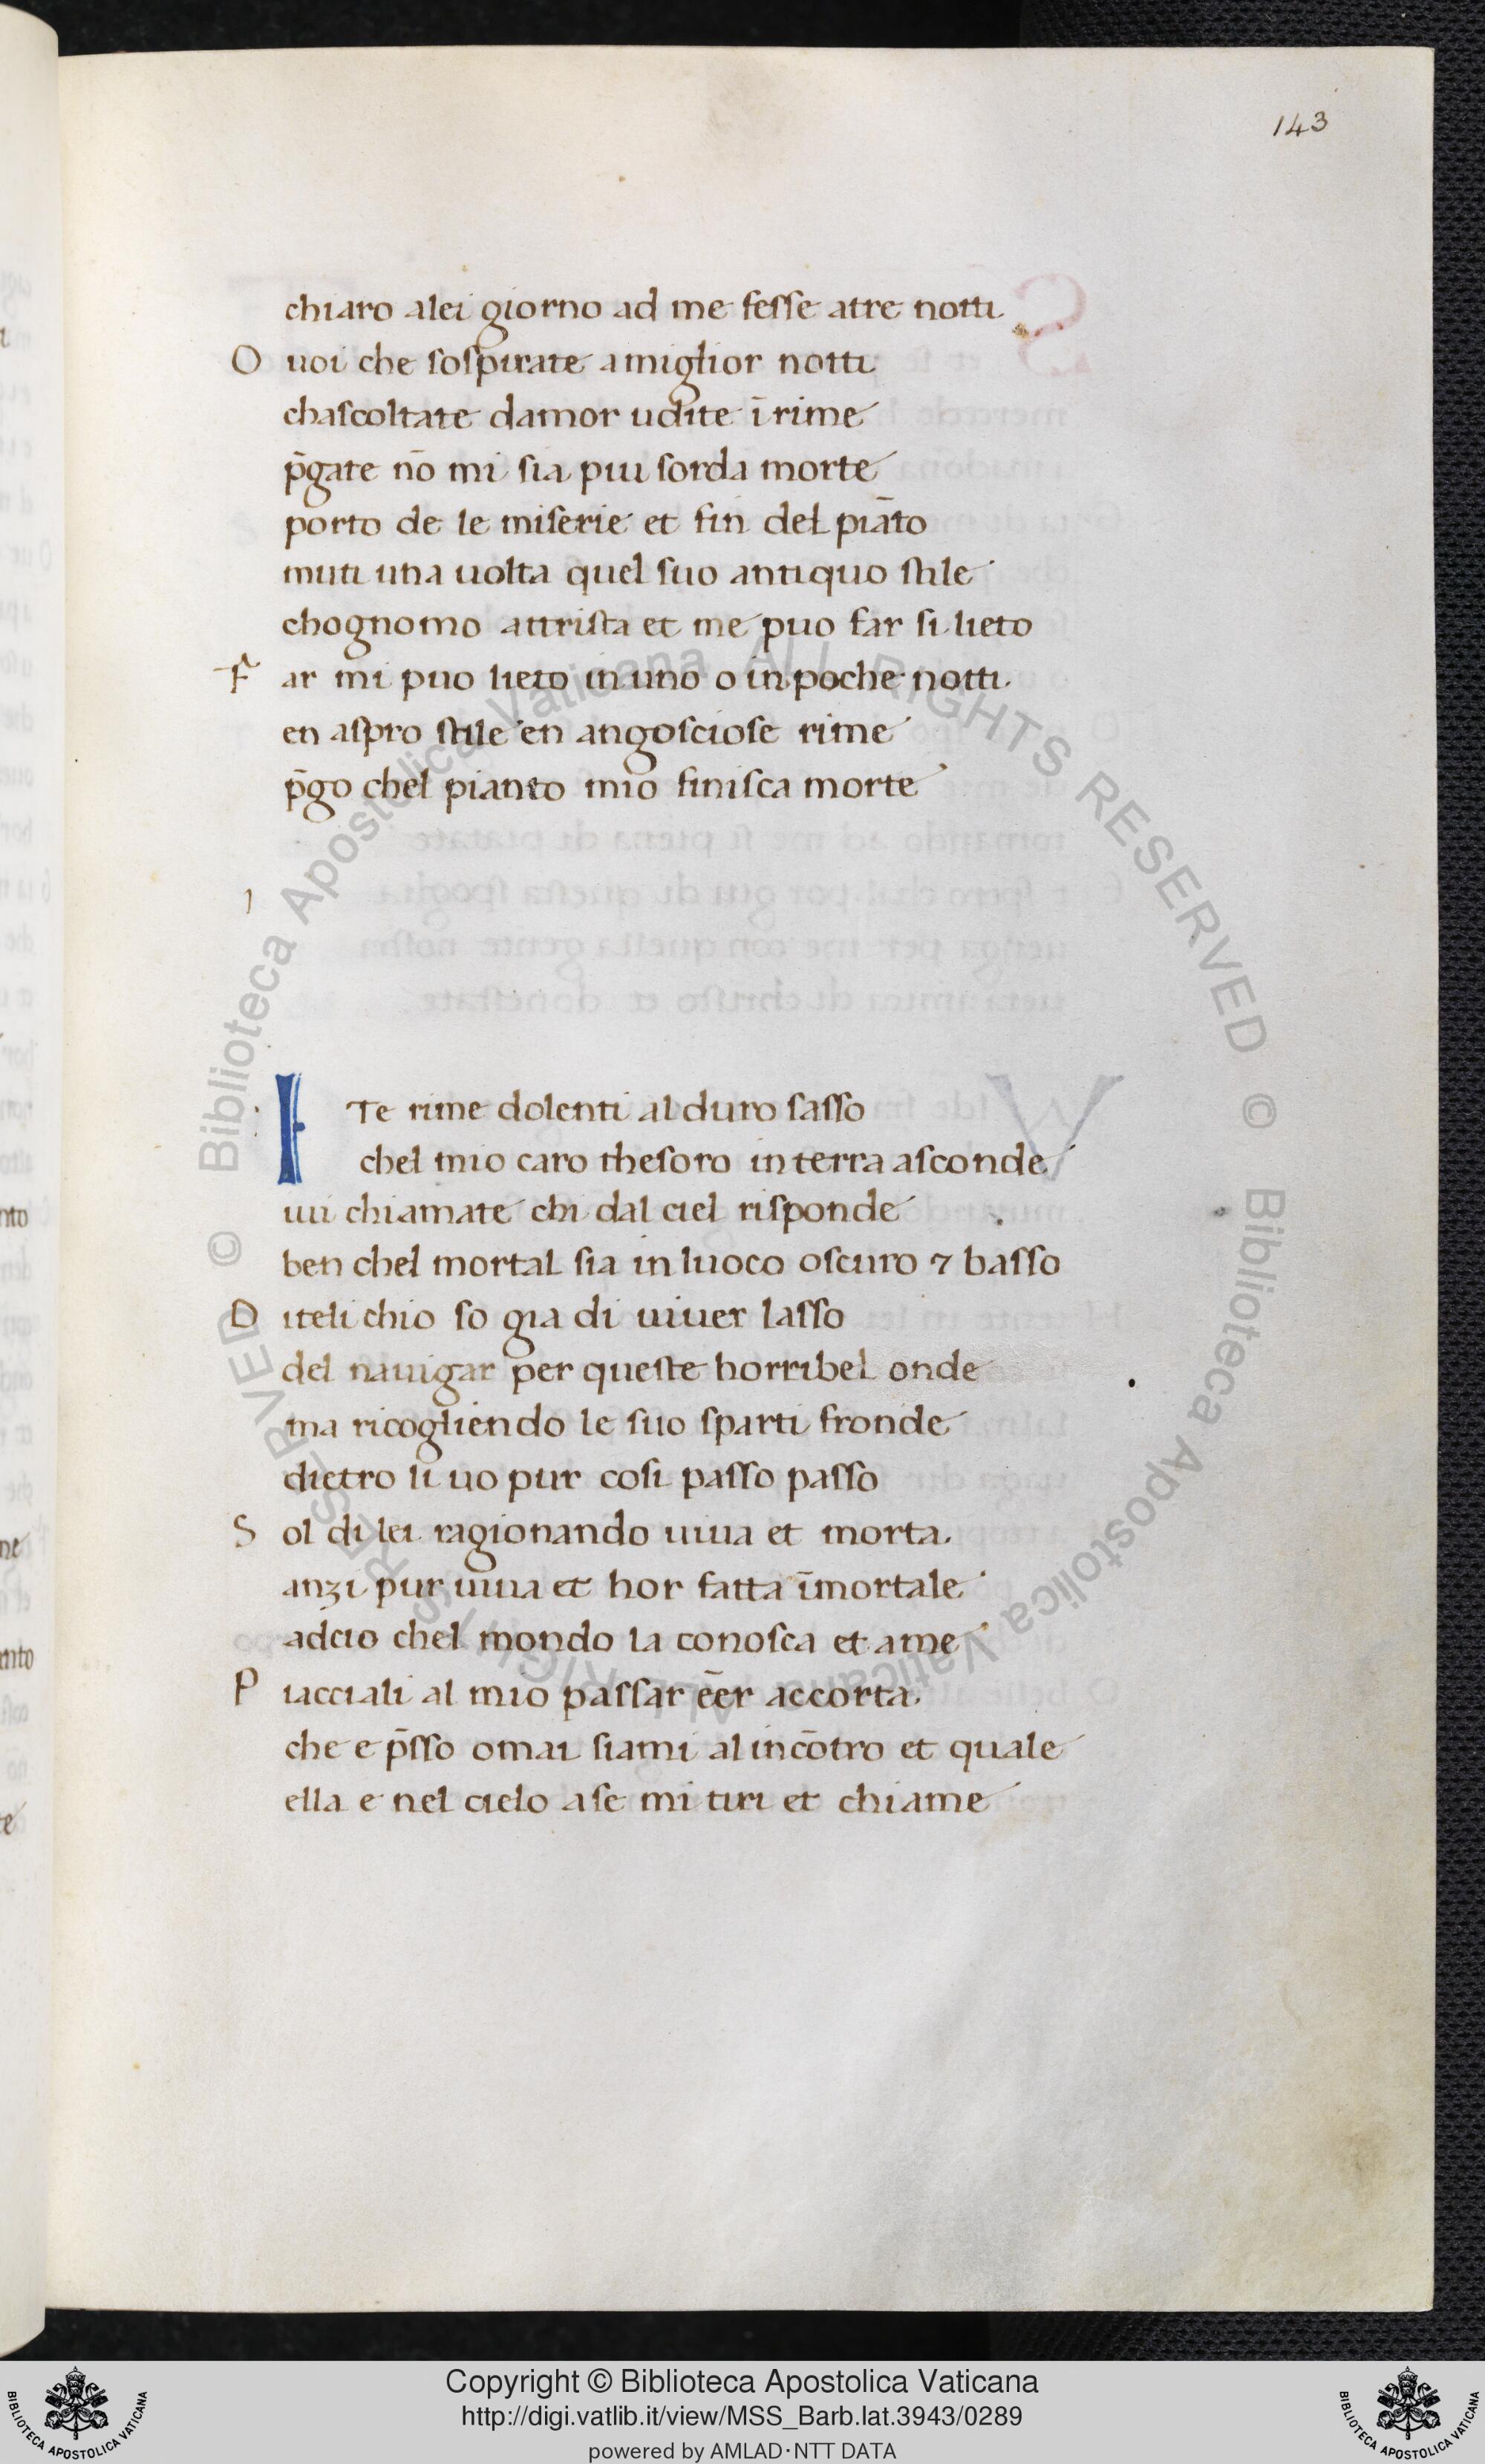 143
chiaro alei giorno ad me fesse atre notti
O uoi che sospirate a miglior notti
chascoltate damor udite ī rime
p̄gate nō mi sia piu sorda morte
porto de le miserie et fin del piāto
muti una uolta quel suo antiquo stile
chognomo attrista et me puo far si lieto
F ar mi puo lieto in uno o in poche notti
en aspro stile en angosciose rime
p̄go chel pianto mio finisca morte
I Te rime dolenti al duro sasso
chel mio caro thesoro in terra asconde
iui chiamate chi dal ciel risponde
ben chel mortal sia in luoco oscuro ⁊ basso
D iteli chio so gia di uiuer lasso
del nauigar per queste horribel onde
ma ricogliendo le suo sparti fronde
dietro li uo pur cosi passo passo
S ol di lei ragionando uiua et morta
anzi pur uiua et hor fatta īmortale
adcio chel mondo la conosca et ame
P iacciali al mio passar eēr accorta
che e p̄sso omai siami al incōtro et quale
ella e nel cielo a se mi tiri et chiame
© Biblioteca Apostolica Vaticana ALL RIGHTS RESERVED © Biblioteca Apostolica Vaticana ALL RIGHTS RESERVED
BIBLIOTECA APOSTOLICA VATICANA
Copyright © Biblioteca Apostolica Vaticana
http://digi.vatlib.it/view/MSS_Barb.lat.3943/0289
powered by AMLAD·NTT DATA
BIBLIOTECA APOSTOLICA VATICANA